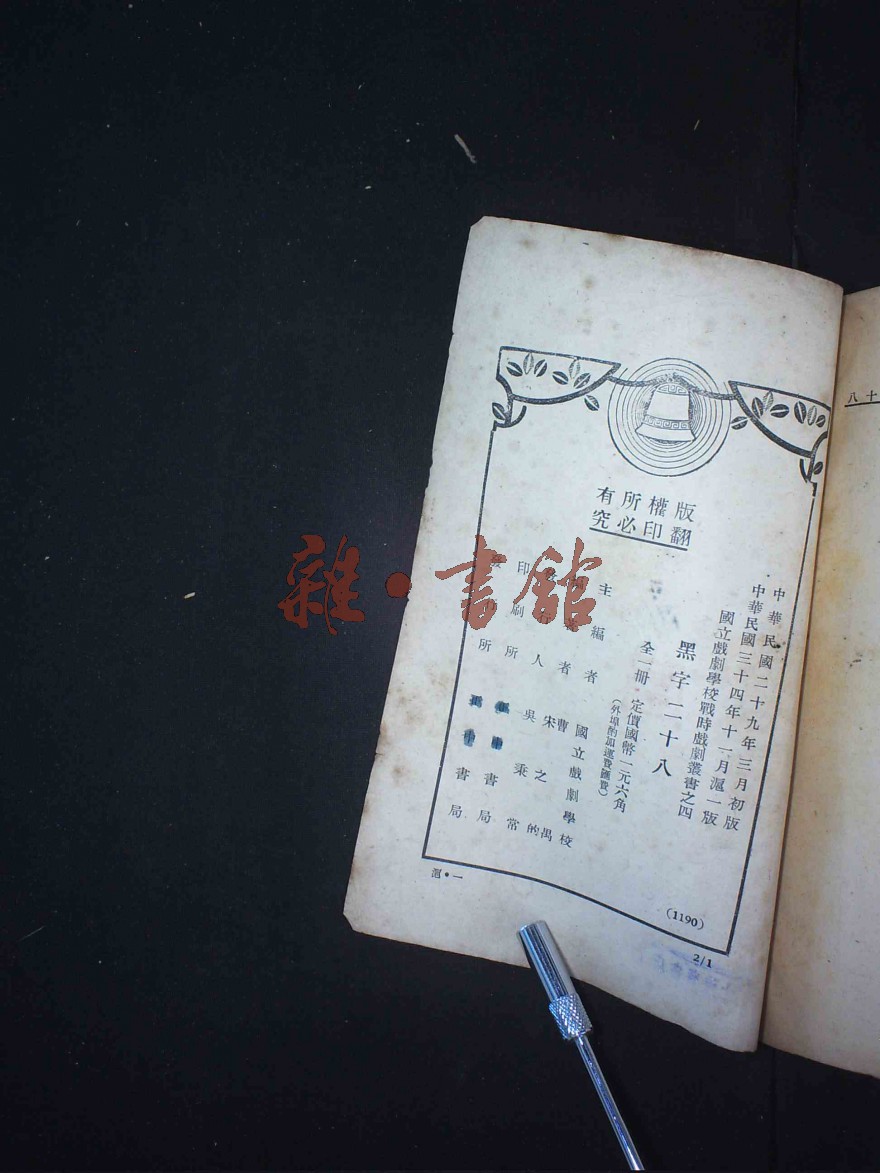 版權所有
翻印必究
中華民國二十九年三月初版
中華民國三十四年十一月滬一版
國立戲劇學校戰時戲劇叢書之四
黑字二十八
全一冊 定價國幣二元六角
(外埠酌加運費匯費)
主編者 國立戲劇學校
者 曹禺
宋之的
人 吳秉常
印刷所 正中書局
所 正中書局
(1190)
滬•一
2/1
十八
雜·書館